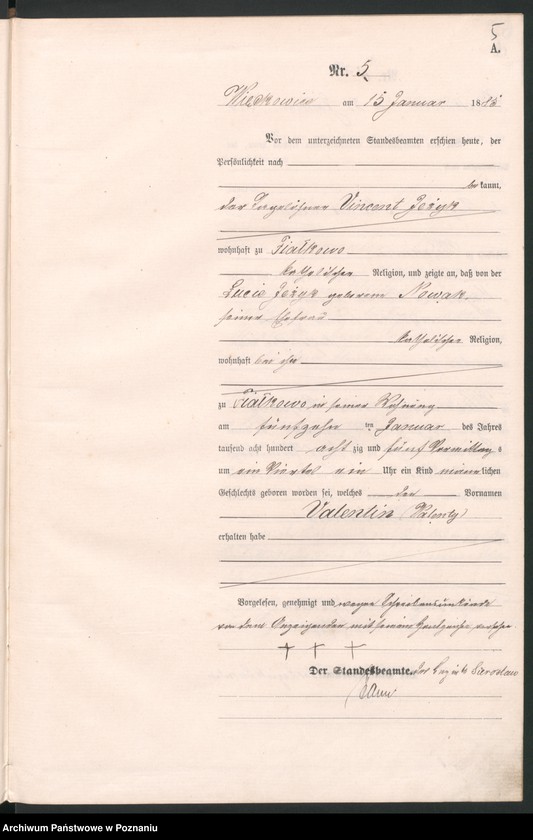 5
A.
Nr. 5.
am 15 Januar 1885
Vor dem unterzeichneten Standesbeamten erschien heute, der
Persönlichkeit nach
be kannt,
der Tagelöhner Vincent Jożyk
wohnhaft zu Fiałkowo
katholischer Religion, und zeigte an, daß von der
Lucie Jożyk geborene Nowak
seiner Ehefrau
katholischer Religion,
wohnhaft bei ihm
zu Fiałkowo in seiner Wohnung
am fünfzehn ten Januar des Jahres
tausend acht hundert acht zig und fünf Vormittag s
um ein Viertel ein Uhr ein Kind männ lichen
Geschlechts geboren worden sei, welches den Vornamen
Valentin (Walenty)
erhalten habe
Vorgelesen, genehmigt und wegen Schreibensunkunde
von dem Anzeigenden mit seinem Handzeichen versehen
+ + +
Der Standesbeamte.
Archiwum Państwowe w Poznaniu